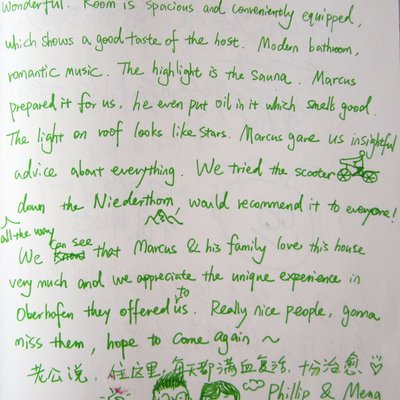 wonderful. Room is spacious and conveniently equipped,
which shows a good taste of the host. Modern bathroom,
romantic music. The highlight is the sauna. Marcus
prepared it for us, he even put oil in it which smells good.
The light on roof looks like stars. Marcus gave us insightful
advice about everything. We tried the scooter
all the way down the Niederthorn, would recommend it to everyone!
We can see that Marcus & his family love this house
very much and we appreciate the unique experience in
Oberhofen they offered to us. Really nice people, gonna
miss them, hope to come again ~
老公说，住这里，每天都满血复活，十分治愈 ♡
Phillip & Mena